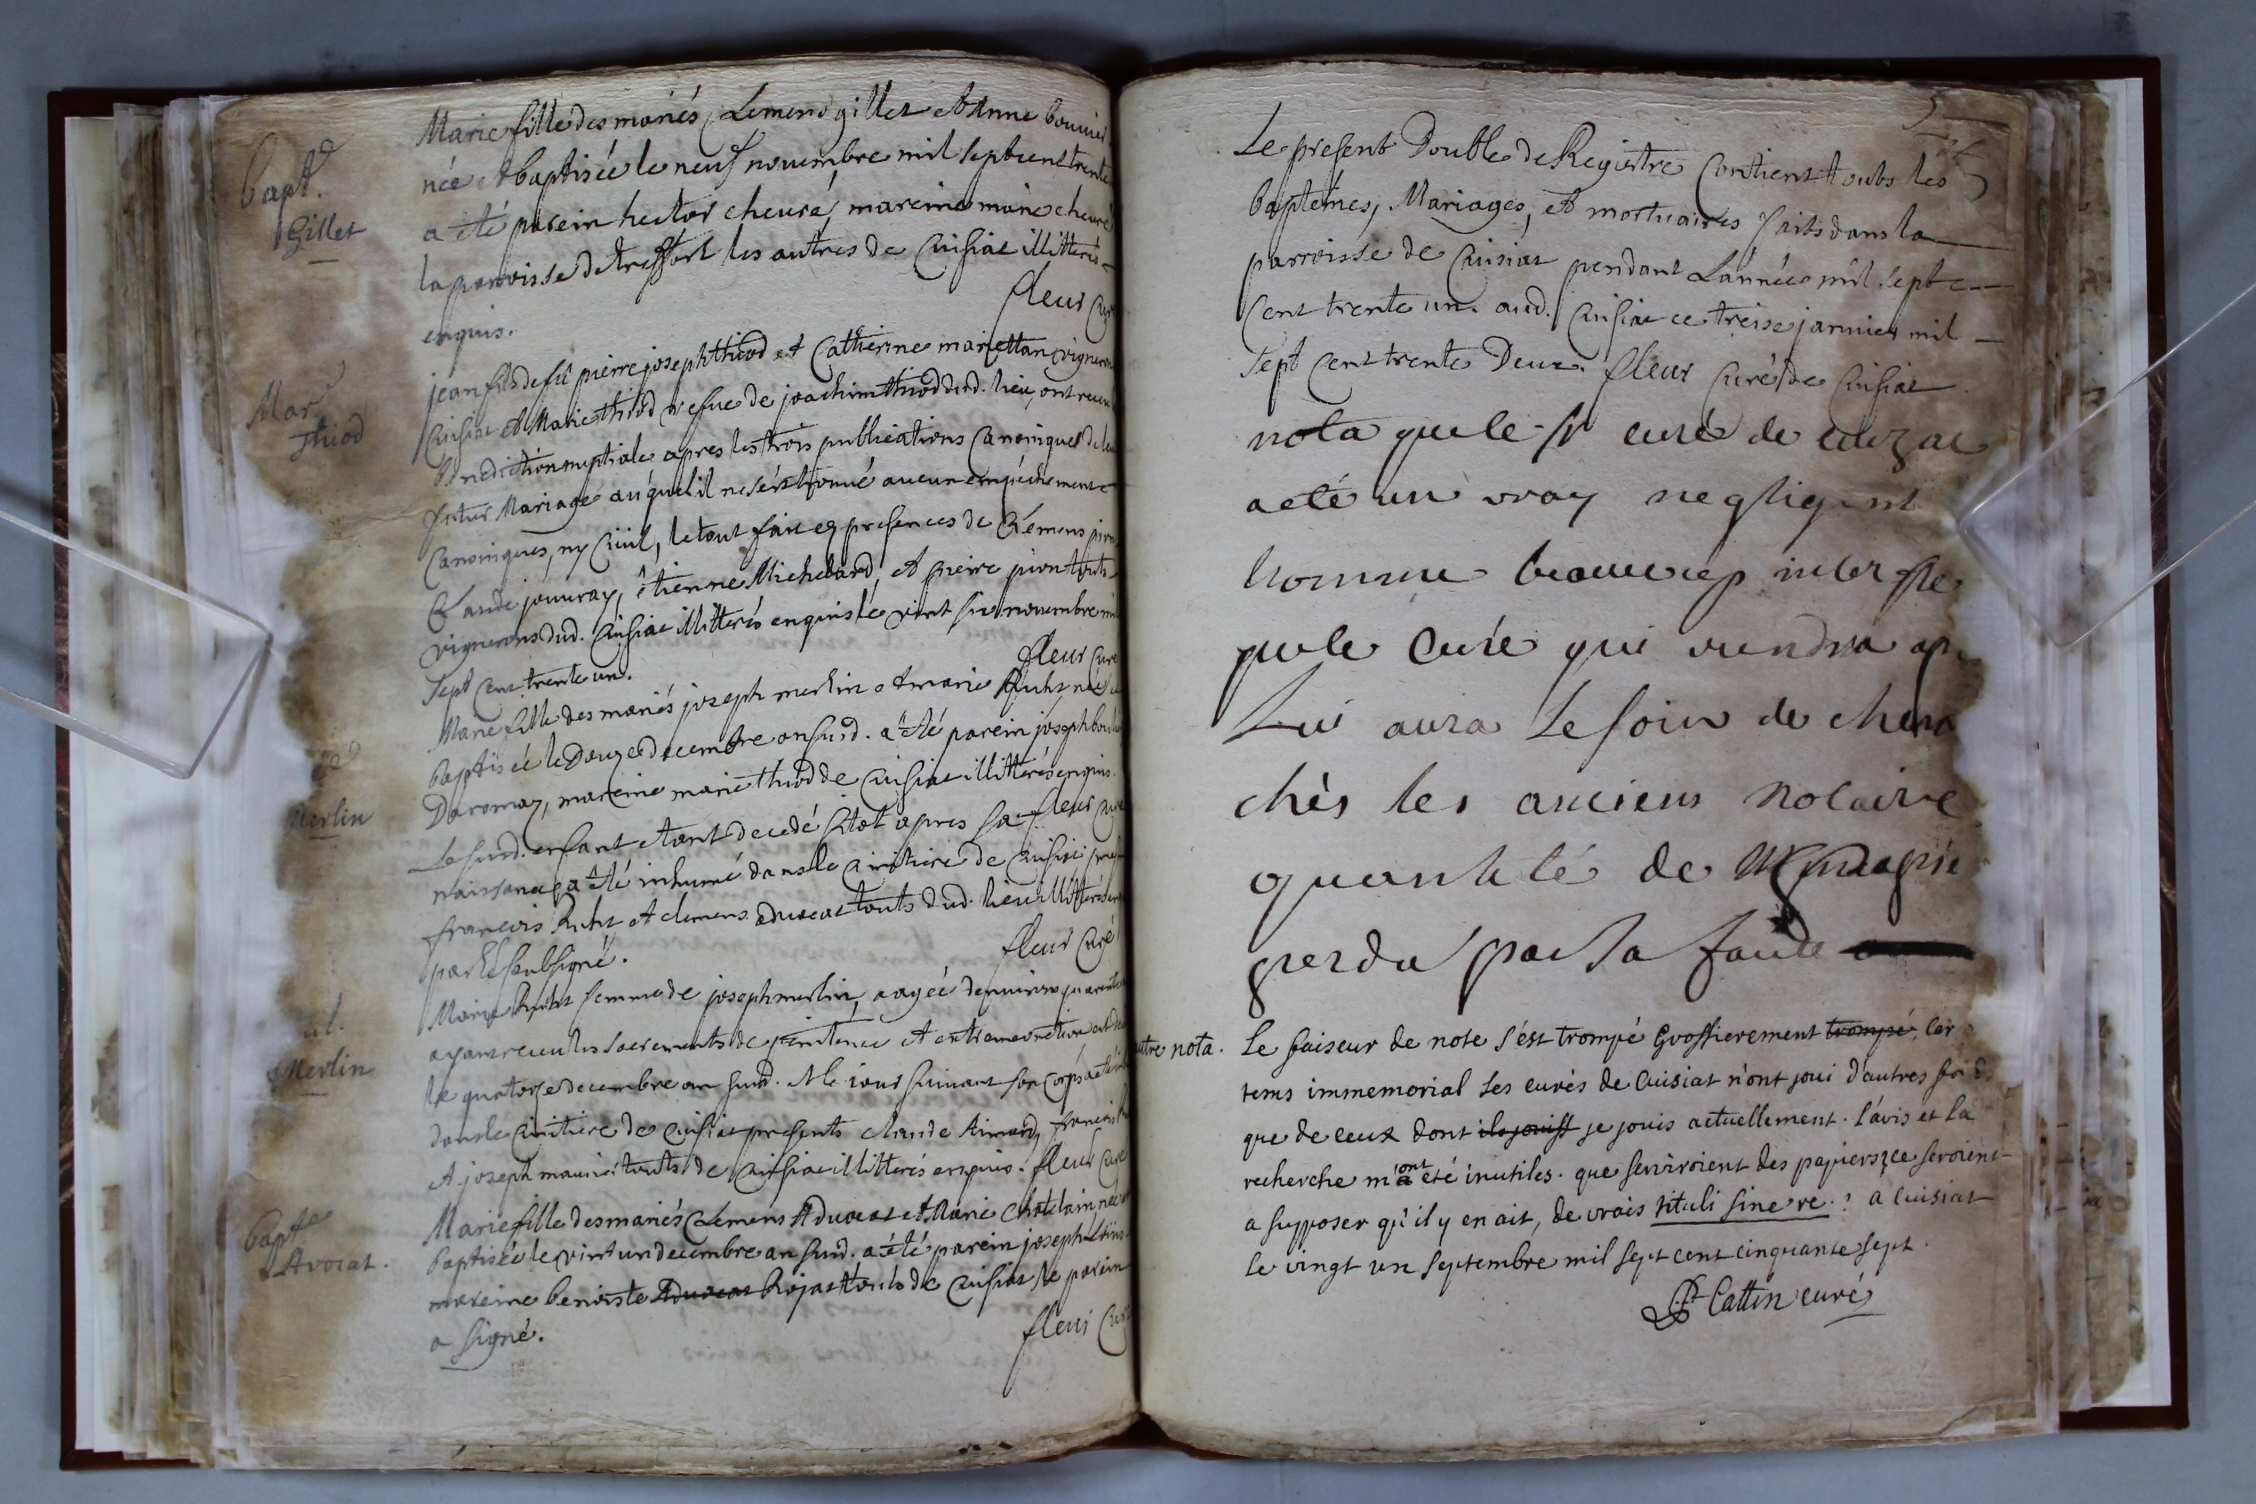 Bapt.
Gillet
Marie fille des mariés Clemens gillet et Anne
née et baptisée le neuf nouembre mil sept cent trente
a été parein hector cheuré, mareine marie cheuré
la parroisse de treffort les autres de Cuisiat illitterés
enquis.
fleur Curé
Mar.
Thiod
jean fils de fû pierre joseph thiod et Catherine mariettan vigneron
Cuisiat et Marie thiod vefue de joachim thiod dud. lieu, ont receu
benediction nuptiale apres les trois publications Canoniques de leur
futur Mariage auquel il ne s'est trouué aucun empéchement
Canonique, ny Ciuil, le tout fait en presences de Clemens
Claude jouuray, étienne Michelard, et pierre pion touts
vignerons dud. Cuisiat illitterés enquis le vint six nouembre mil
sept cent trente un.
fleur Curé
Merlin
Marie fille des mariés joseph merlin et marie née
baptisée le Douze decembre an susd. a été parein joseph
Daromay, mareine marie thiod de Cuisiat illitterés enquis.
fleur Curé
Le susd. enfant etant decedé sitot apres sa
naissance a été inhumé dans le cimitiere de Cuisiat
françois et clemens aduocat touts dud. lieu illitterés
par le soubsigné.
fleur Curé
Merlin
Marie femme de joseph merlin, aagée denuiron quarante
ayant receu les sacrements de penitence et extremeonction est
le quatorze decembre an susd. et le iour suiuant son corps a été
dans le cimitiere de Cuisiat presents claude françois
et joseph maurier touts de Cuisiat illitterés enquis. fleur Curé
Bapt.
Avocat.
Marie fille des mariés Clemens Aduocat et Marie Chatelain, née
baptisée le vint un decembre an susd. a été parein joseph
mareine benoiste Aduocat touts de Cuisiat le parein
a signé.
fleur Curé
Le present Double de Registre Contient touts les
baptémes, Mariages, et mortuaires faits dans la
parroisse de Cuisiat pendant L'année mil sept
Cent trente un. aud. Cuisiat ce treise januier mil
sept Cent trente Deux. fleur Curé de Cuisiat
nota que le sr curé de
a eté un vray negligent
homme beaucoup
que le curé qui viendra
Lui aura le soin de cherc
chés les anciens notaire
quantité de
perdu par sa faute
autre nota.
Le faiseur de note s'ést trompé Grossierement trompé, Car
tems immemorial Les curés de Cuisiat n'ont joui d'autres
que de ceux dont ils jouiss je jouis actuellement. l'avis et la
recherche m'a ont eté inutiles. que serviroient des papiers, ce seroient
a supposer qu'il y en ait, de vrais tituli sine re.? a Cuisiat
le vingt un septembre mil sept cent cinquante sept.
Cattin curé